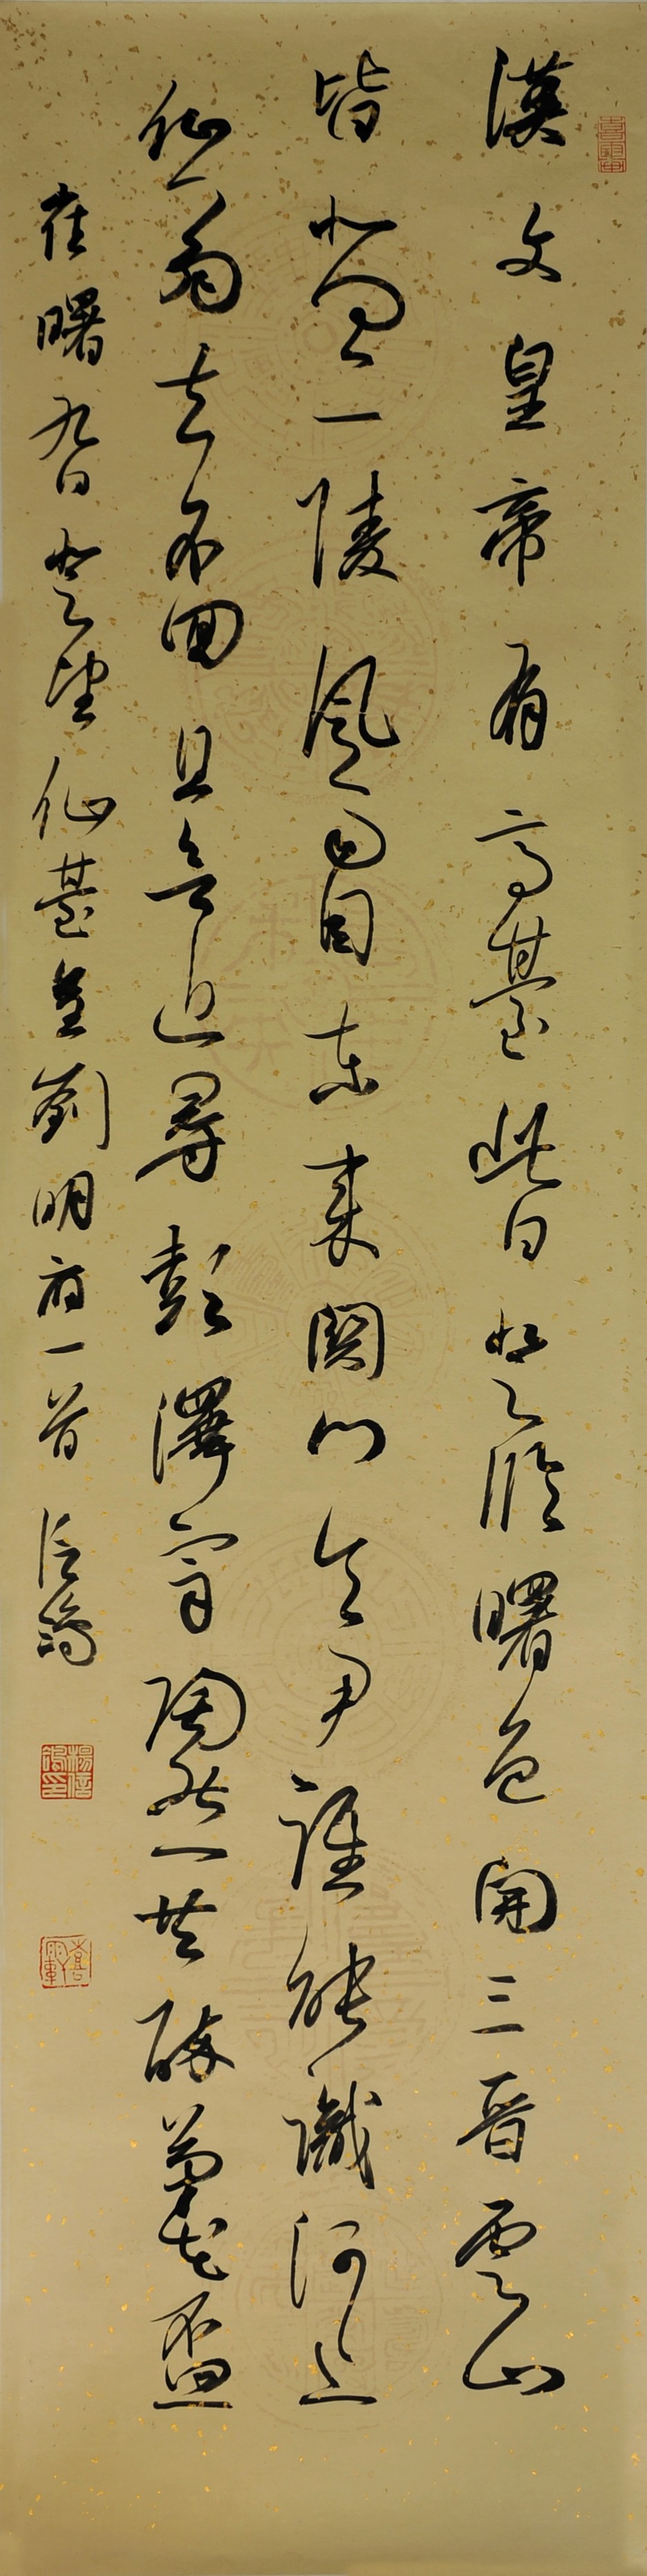 漢文皇帝有高臺此日登臨曙色開三晉雲山
皆北向二陵風雨自東來關門令尹誰能識河上
仙翁去不回且欲近尋彭澤宰陶然共醉菊花盃
崔曙九日登望仙臺呈劉明府一首